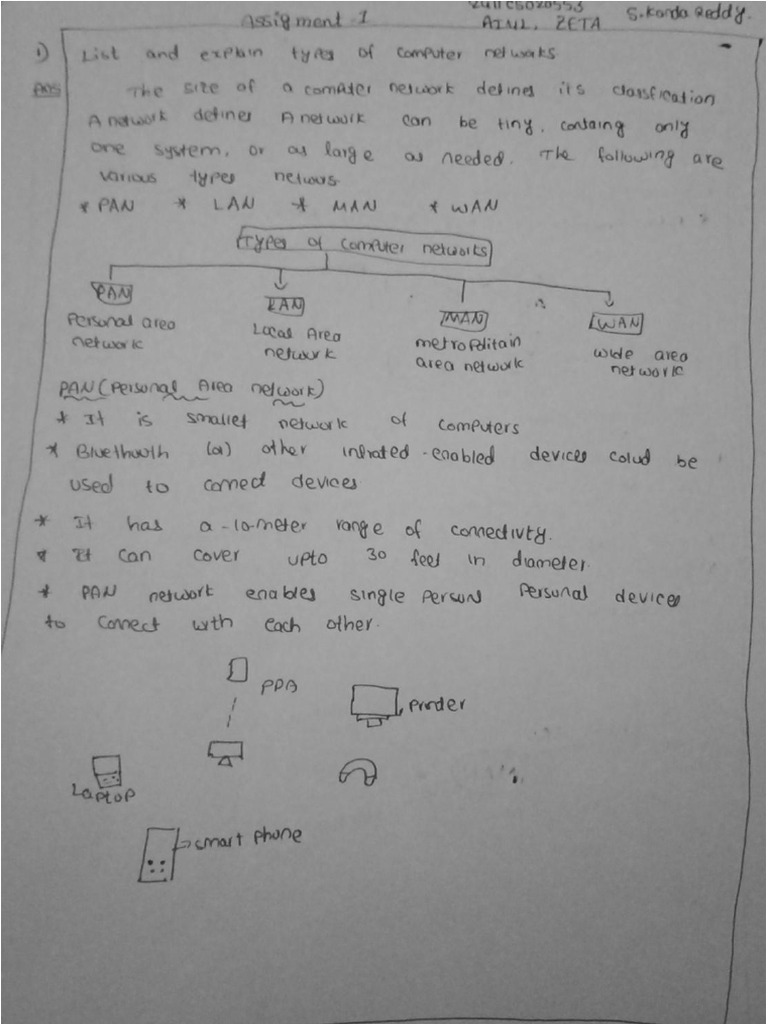 Assigment 1
AIML, ZETA
S.Konda Reddy.
1) List and explain types of computer networks
Ans The size of a computer network defines its classfication
A network defines A network can be tiny, containg only
one system, or as large as needed. The following are
various types networs
* PAN * LAN * MAN * WAN
Types of computer networks
PAN LAN MAN WAN
Personal area network
Local Area network
metropolitain area network
wide area network
PAN (Personal Area network)
* It is smallet network of computers
* Bluethooth (or) other infrated-enabled devices colud be
used to connect devices
* It has a-10-meter range of connectivty.
* It can cover upto 30 feet in diameter.
* PAN network enables single persons Personal devices
to connect with each other.
PDA
printer
Laptop
smart phone